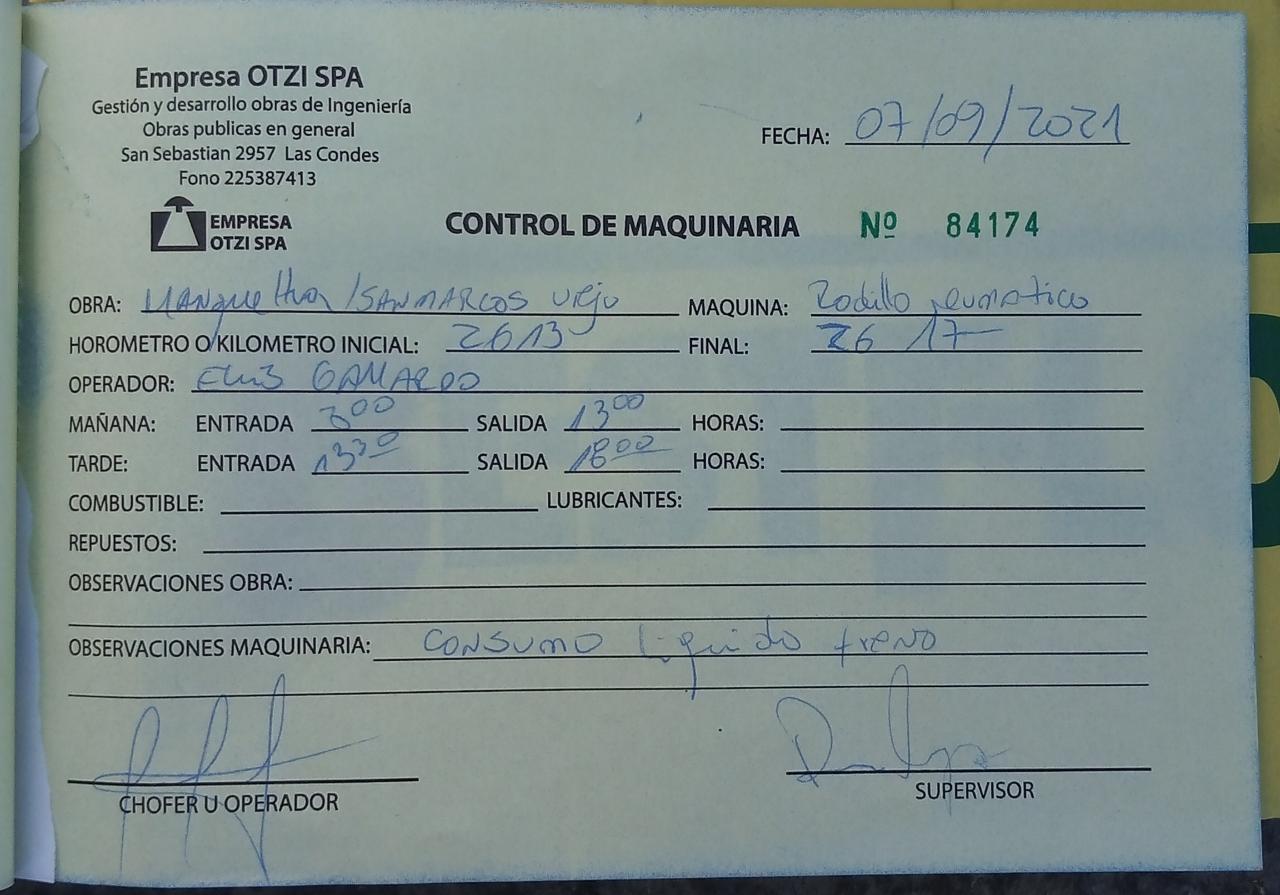 Empresa OTZI SPA
Gestión y desarrollo obras de Ingeniería
Obras publicas en general
San Sebastian 2957 Las Condes
Fono 225387413
FECHA: 07/09/2021
EMPRESA
OTZI SPA
CONTROL DE MAQUINARIA Nº 84174
OBRA: /SANMARCOS viejo MAQUINA: Rodillo neumatico
HOROMETRO O KILOMETRO INICIAL: 2613 FINAL: 2617
OPERADOR: GALLARDO
MAÑANA: ENTRADA 800 SALIDA 1300 HORAS:
TARDE: ENTRADA 1330 SALIDA 1800 HORAS:
COMBUSTIBLE: LUBRICANTES:
REPUESTOS:
OBSERVACIONES OBRA:
OBSERVACIONES MAQUINARIA: CONSUMO liquido freno
CHOFER U OPERADOR
SUPERVISOR